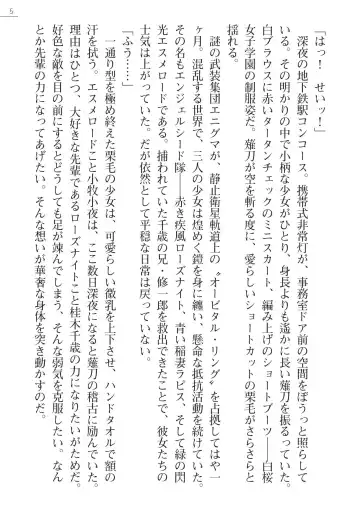 5
「はっ！　せいッ！」
　深夜の地下鉄駅コンコース。携帯式非常灯が、事務室ドア前の空間をぼうっと照らして
いる。その明かりの中で小柄な少女がひとり、身長よりも遥かに長い薙刀を振るっていた。
白ブラウスに赤いタータンチェックのミニスカート、編み上げのショートブーツ――白桜
女子学園の制服姿だ。薙刀が空を斬る度に、愛らしいショートカットの栗毛がさらさらと
揺れる。
　謎の武装集団エニグマが、静止衛星軌道上の〝オービタル・リング〟を占拠してはや一
ヶ月。混乱する世界で、三人の少女は煌めく鎧を身に纏い、懸命な抵抗活動を続けていた。
その名もエンジェルシード隊――赤き疾風ローズナイト、青い稲妻ラピス、そして緑の閃
光エスメロードである。捕われていた千歳の兄・修一郎を救出できたことで、彼女たちの
士気は上がっていた。だが依然として平穏な日常は戻っていない。
「ふう……」
　一通り型を極め終えた栗毛の少女は、可愛らしい微乳を上下させ、ハンドタオルで額の
汗を拭う。エスメロードこと小牧小夜は、ここ数日深夜になると薙刀の稽古に励んでいた。
理由はひとつ、大好きな先輩であるローズナイトこと桂木千歳の力になりたいがためだ。
好色な敵を目の前にするとどうしても足が竦んでしまう。そんな弱気を克服したい。なん
とか先輩の力になってあげたい。そんな想いが華奢な身体を突き動かすのだ。